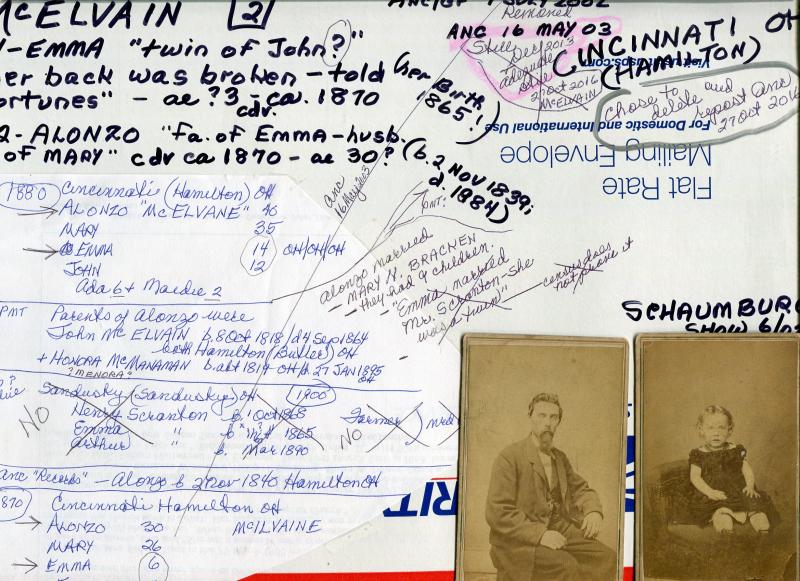 McELVAIN [2]
1-EMMA "twin of John?"
her back was broken - told
fortunes" - ae ?3 - ca. 1870
cdv.
(her Birth
1865!)
2- ALONZO "Fa. of EMMA - husb.
of MARY" cdv ca 1870 - ae 30? (b.
2 NOV 1839;
d. 1984)
JULY 2002
Removed
ANC 16 MAY 03
Still
Dec 2013
adequate
one
27 Oct 2016
McELVAIN
CINCINNATI OH
(HAMILTON)
chose to
delete and
repost anc
27 Oct 2016
Visit us at usps.com
For Domestic and International Use
Mailing Envelope
Flat Rate
1880 Cincinnati (Hamilton) OH
ALONZO "McELVANE" 40
MARY 35
EMMA 14 OH/OH/OH
JOHN 12
Ada 6 + Maidie 2
anc
16 May 2003
PMT:
Alonzo married
- MARY N. BRACKEN
- they had 9 children:
- "Emma married
Mr. Scranton - She
was a twin"
census does
not prove it
PMT Parents of Alonzo were
John McELVAIN b. 8 Oct 1818 / d 4 Sep 1864
both Hamilton (Butler) OH
+ HONORA McMANAMAN b. abt 1819 OH / d 27 JAN 1895
OH
? "MENORA"
NO
Sandusky (Sandusky) OH 1900
Henry Scranton b. Oct 1863
Emma " b. 1865
Arthur " b. Mar 1890
Farmer
NO
anc "Records" - Alonzo b 2 nov 1840 Hamilton OH
1870 Cincinnati Hamilton OH
ALONZO 30 McILVAINE
MARY 26
EMMA 6
SCHAUMBURG
SHOW